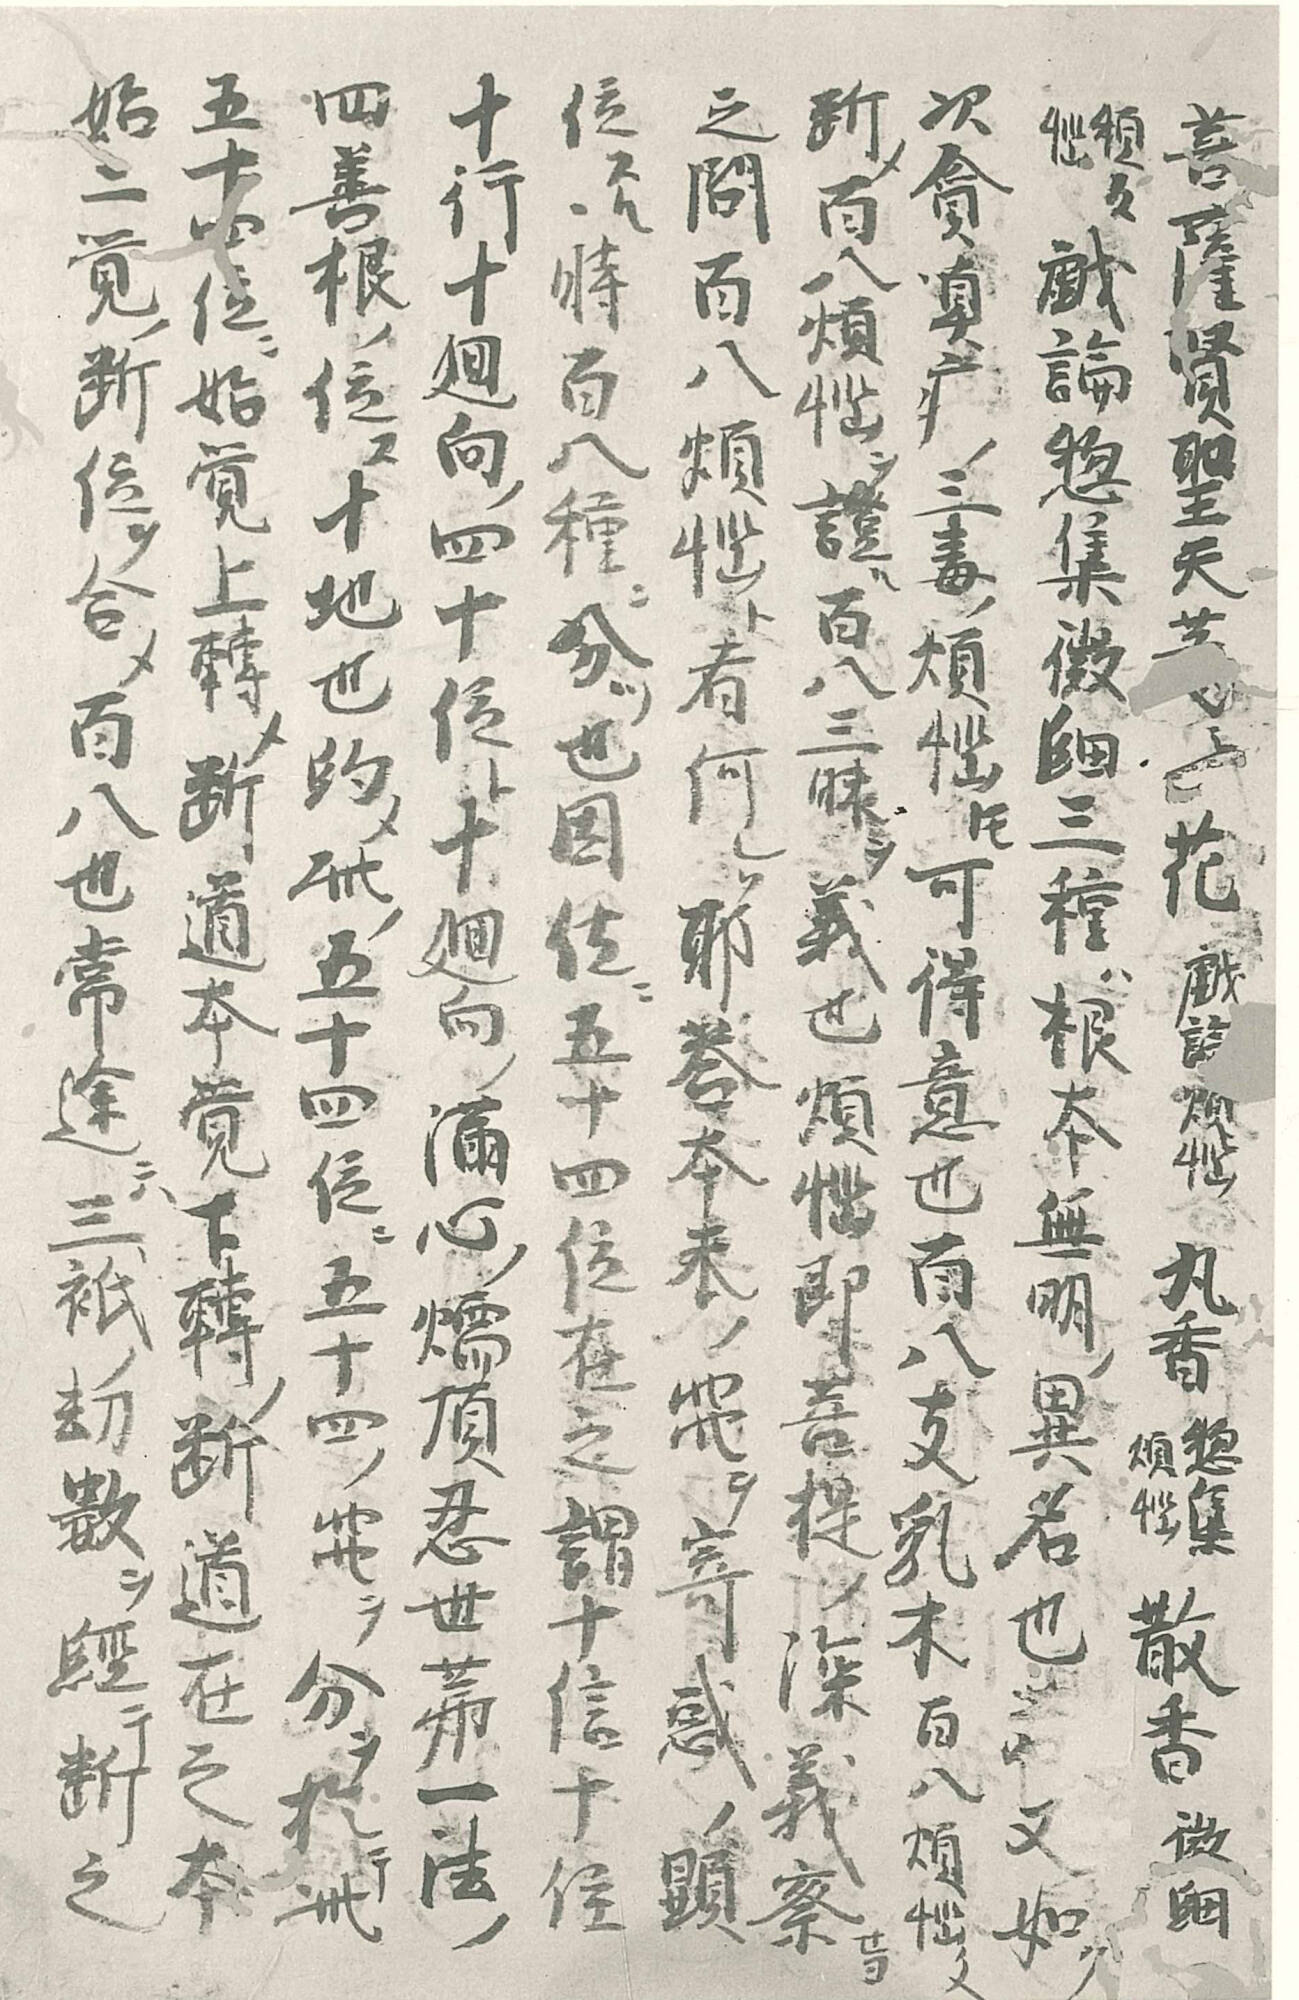 菩薩賢聖天等二花 戯論煩悩 丸香 惣集煩悩 散香 微細
煩悩 戯論惣集微細三種ハ根本無明ノ異名也 又如ク
次貪嗔疒ノ三毒ノ煩悩トモ可得意也百八支乳木百八煩悩文
断メ百八煩悩ヲ證ル百八三昧ヲ義也煩悩即菩提ノ深義察
之問百八煩悩ト者何シ耶答本来ノ ヲ寄惑ノ顕
位スル時百八種ニ分ツ也因位ニ五十四位在之謂十信十住
十行十廻向ノ四十位ト十廻向ノ満心ノ煗頂忍世第一法ノ
四善根ノ位ス十地也約メ此ノ五十四位ニ五十四ノ ヲ分ヲ 此
五十四位ニ始覚上轉メ断道本覚下轉ノ断道在之本
始二覚ノ断位ヲ合メ百八也常途ニハ三祇ノ劫数ヲ經テ断之